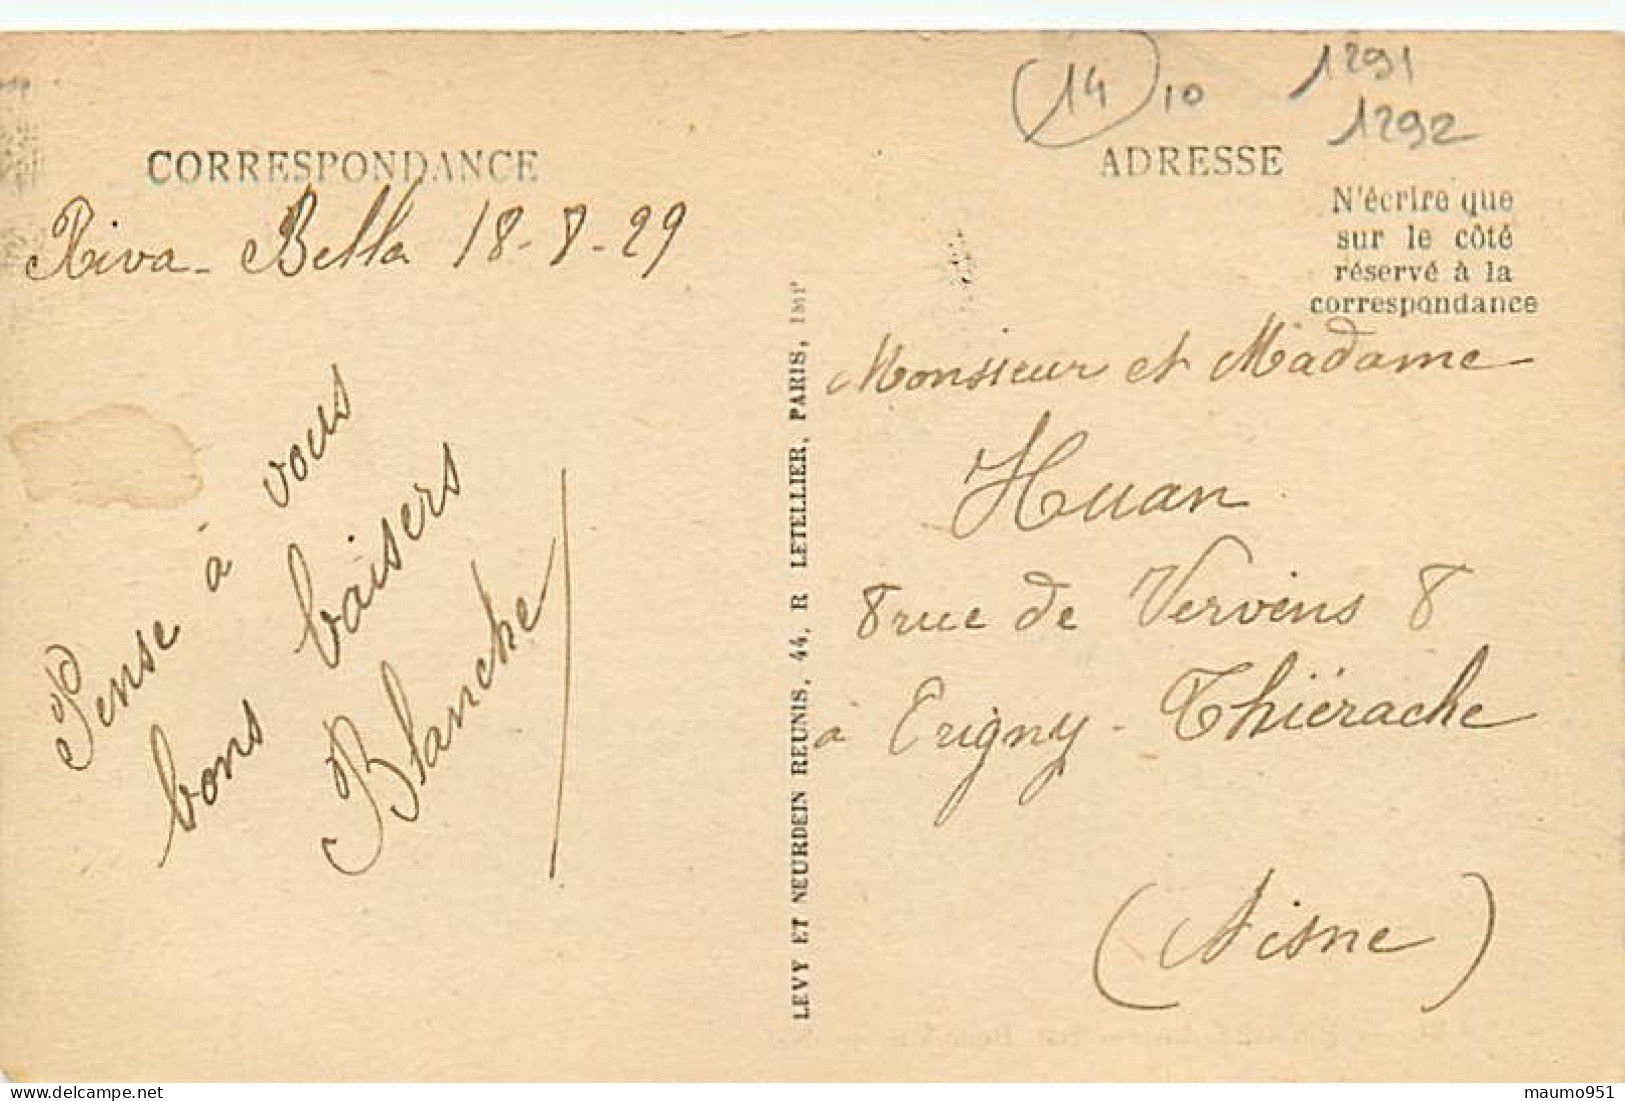 14 10 1291
1292
CORRESPONDANCE
ADRESSE
N'écrire que
sur le côté
réservé à la
correspondance
Riva-Bella 18-8-29
Pense à vous
bons baisers
Blanche
LEVY ET NEURDEIN REUNIS, 44, R LETELLIER, PARIS, IMP
Monsieur et Madame
Huan
8 rue de Vervins 8
à Erigny-Thiérache
(Aisne)
maumo951